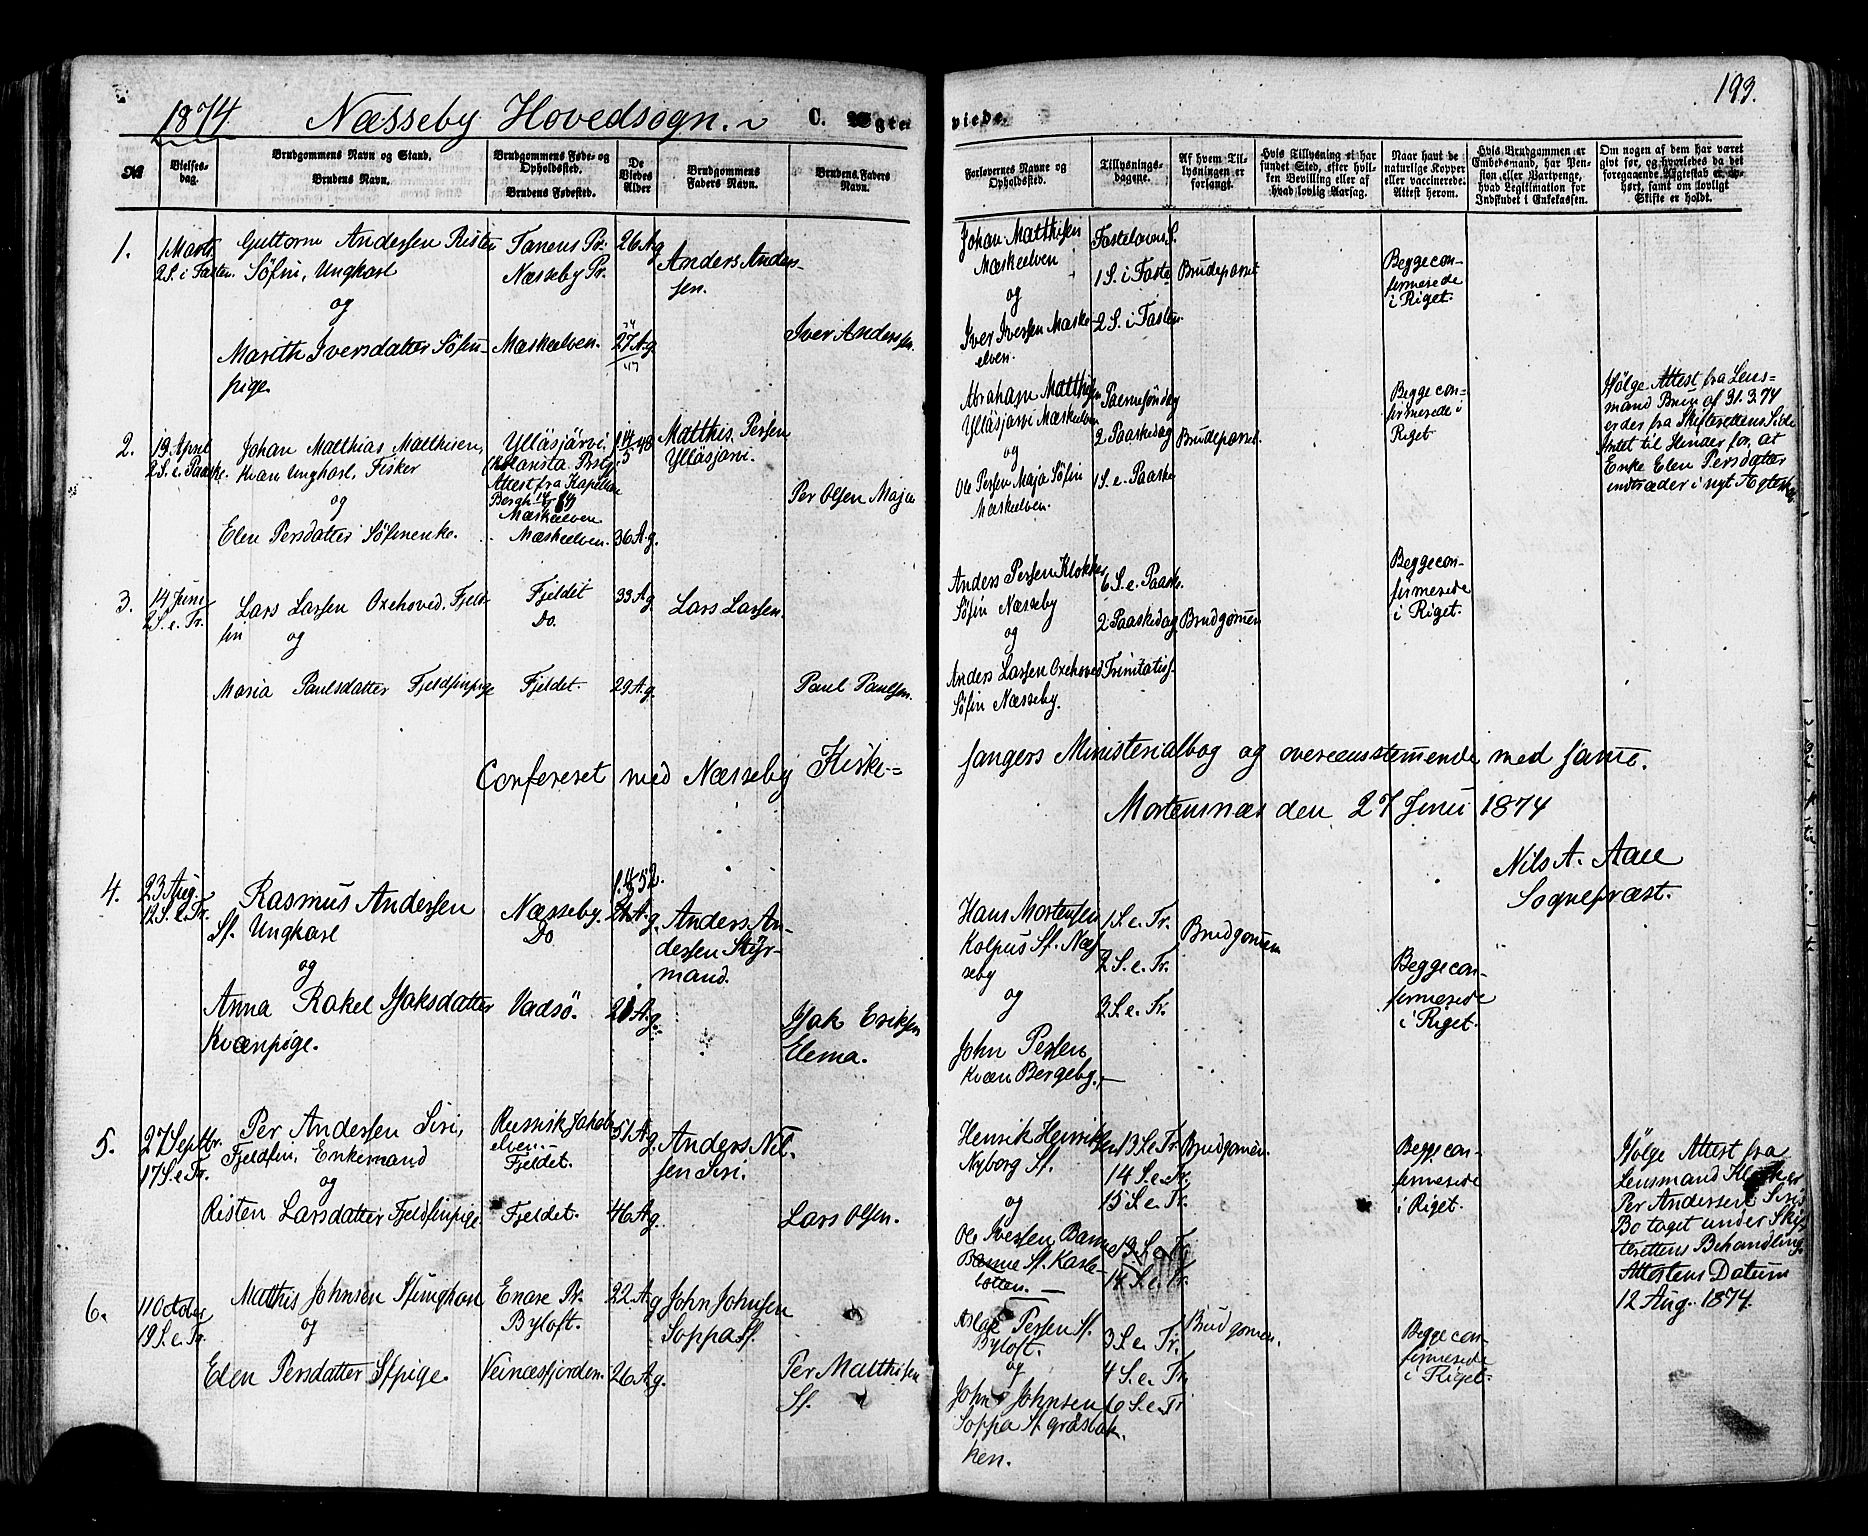 1874. Næsseby Hovedsogn. C. Ægte
viede. 193.
№
Vielses-
dag.
Brudgommens Navn og Stand.
Brudens Navn.
Brudgommens Føde- og
Opholdssted.
Brudens Fødested.
De
Viedes
Alder
Brudgommens
Faders Navn.
Brudens Faders
Navn.
Forlovernes Navne og
Opholdssted.
Tillysnings-
dagene.
Af hvem Til-
lysningen er
forlangt.
Hvis Tillysning ei har
fundet Sted, efter hvil-
ken Bevilling eller af
hvad lovlig Aarsag.
Naar havt de
naturlige Kopper
eller vaccinerede.
Attest herom.
Hvis Brudgommen er
Embedsmand, har Pen-
sion eller Vartpenge,
hvad Legitimation for
Indskudet i Enkekassen.
Om nogen af dem har været
givt før, og hvorledes da det
foregaaende Ægteskab er op-
hørt, samt om lovligt
Skifte er holdt.
1.
1 Marts
2 S. i Fasten
Guttorm Andersen Risten
Söfin, Ungkarl
og
Marith Iversdatter Söfin-
pige.
Tanens Pr.
Næsseby Pr.
Mæskelven.
26 A. g.
27 A. g.
Anders Anders-
sen.
Iver Anderssen.
Johan Matthisen
Mæskelven
og
Iver Iversen Mæsk-
elven.
Fastelavns S.
1 S. i Faste
2 S. i Fasten
Brudeparret
Begge con-
firmerede
i Riget.
2.
19 April
2 S. e. Paaske.
Johan Matthias Matthisen,
Kvæn Ungkarl, Fisker
og
Elen Persdatter Söfinenke.
Ylläsjärvi
Attest fra Kapellan
Bergh
Mæskelven
Mæskelven.
48
36 A. g.
Matthis Persen
Ylläsjarvi.
Per Olsen Maja
Abraham Matthisen
Ylläsjarvi Mæskelven
og
Ole Persen Maja Söfin
Mæskelven.
Palmesöndag
2 Paaskedag
1 S. e. Paaske
Brudeparret.
Begge con-
firmerede i
Riget
Ifölge Attest fra Lens-
mand Bruu af 31.3.74
er der fra Skifterettens Side
Intet til Hinder for, at
Enke Elen Persdatter
indtræder i nyt Ægteskab
3.
14 Juni
2 S. e. Tr.
Lars Larsen Oxehoved. Fjeld-
fin og
Maria Paulsdatter Fjeldfinpige
Fjeldet
Do.
Fjeldet.
33 A. g.
29 A. g.
Lars Larsen.
Paul Paulsen.
Anders Persen Klokker
Söfin Næsseby
og
Anders Larsen Oxehoved
Söfin Næsseby.
6 S. e. Paaske.
2 Paaskedag
Trinitatisf.
Brudgommen
Begge con-
firmerede
i Riget.
Confereret med Næsseby Kirke-
sangers Ministerialbog og overeensstemmende med samme.
Mortensnæs den 27 Juni 1874
Nils A. Aall
Sognepræst.
4.
23 Aug.
12 S. e. Tr.
Rasmus Andersen
Sf. Ungkarl
og
Anna Rakel Isaksdatter
Kvænpige.
Næsseby.
Do
Vadsö.
52.
21 A. g.
21 A. g.
Anders An-
dersen Styr-
mand.
Isak Eriksen
Elema.
Hans Mortensen
Kolpus Sf. Næs-
seby
og
John Persen
Kvæn Bergeby.
1 S. e. Tr.
2 S. e. Tr.
3 S. e. Tr.
Brudgommen
Begge con-
firmerede
i Riget.
5.
27 Septbr.
17 S. e. Tr.
Per Andersen Siri,
Fjeldfin, Enkemand
og
Risten Larsdatter Fjeldfinpige
Russisk Jakobs-
elven.
Fjeldet.
Fjeldet.
51 A. g.
46 A. g.
Anders Nil-
sen Siri.
Lars Olsen.
Henrik Henriksen
Nyborg Sf.
og
Ole Iversen Banne
Banne Sf. Karle-
botten.
13 S. e. Tr.
14 S. e. Tr.
15 S. e. Tr.
13 S. e. Tr.
14 S. e. Tr.
Brudgommen.
Begge con-
firmerede
i Riget.
Ifölge Attest fra
Lensmand
Per Andersen Siris
Bo taget under Skif-
terettens Behandling.
Attestens Datum
12 Aug. 1874.
6.
11 October
19 S. e. Tr.
Matthis Johnsen Sfungkarl
og
Elen Persdatter Sfpige.
Enare Pr.
Byloft.
Veinesfjorden.
22 A. g.
26 A. g.
John Johnsen
Soppa Sf.
Per Matthisen
Sf.
Aslak Persen Sf.
Byloft.
og
John Johnsen
Soppa Sf. Græsbak-
ken.
3 S. e. Tr.
4 S. e. Tr.
6 S. e. Tr.
Brudgommen.
Begge con-
firmerede
i Riget.